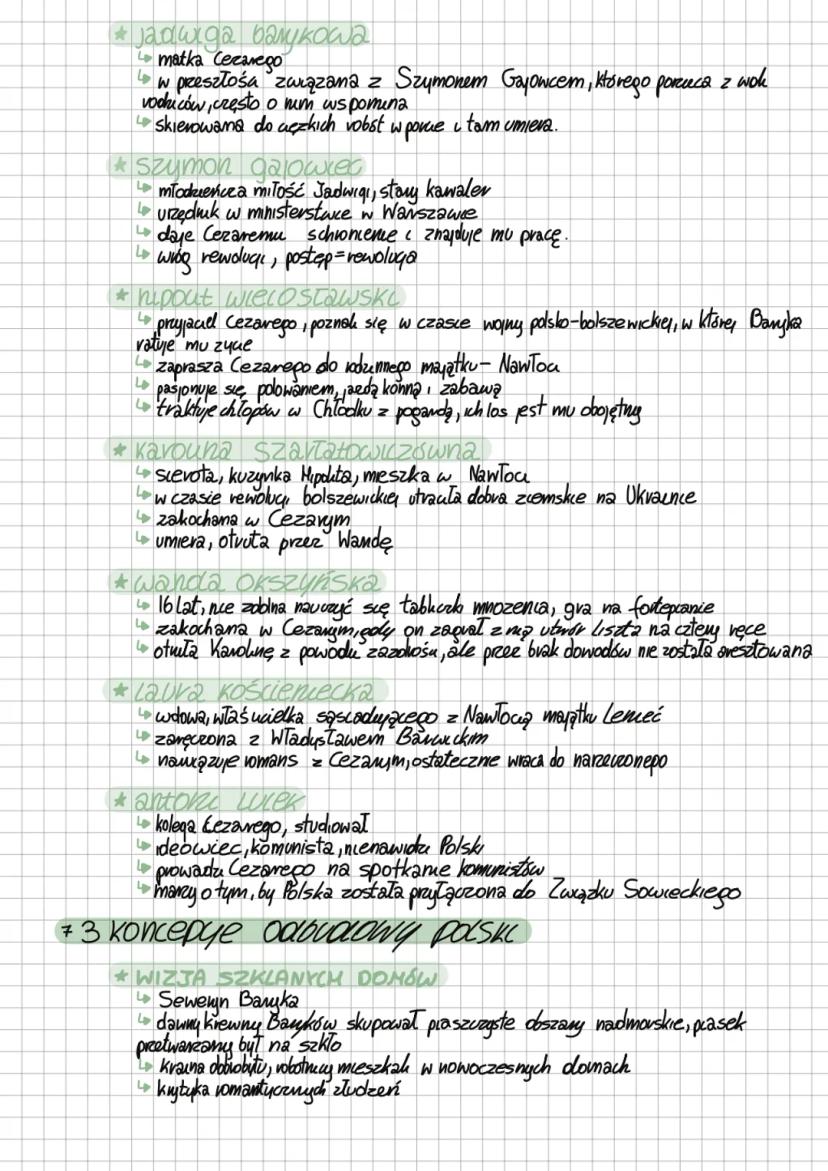 * Jadwiga Barykowa
↳ matka Cezarego
↳ w przeszłości związana z Szymonem Gajowcem, którego porzuca z woli
rodziców, często o nim wspomina
↳ skierowana do ciężkich robót w porcie i tam umiera.
* Szymon Gajowiec
↳ młodzieńcza miłość Jadwigi, stary kawaler
↳ urzędnik w ministerstwie w Warszawie
↳ daje Cezaremu schronienie i znajduje mu pracę.
↳ wróg rewolucji, postęp=rewolucja
* Hipolit Wielosławski
↳ przyjaciel Cezarego, poznali się w czasie wojny polsko-bolszewickiej, w której Baryka
ratuje mu życie
↳ zaprasza Cezarego do rodzinnego majątku - Nawłoci
↳ pasjonuje się polowaniem, jazdą konną i zabawą
↳ traktuje chłopów w Chłodku z pogardą, ich los jest mu obojętny
* Karolina Szarłatowiczówna
↳ sierota, kuzynka Hipolita, mieszka w Nawłoci
↳ w czasie rewolucji bolszewickiej utraciła dobra ziemskie na Ukrainie
↳ zakochana w Cezarym
↳ umiera, otruta przez Wandę
* Wanda Okszyńska
↳ 16 lat, nie zdolna nauczyć się tabliczki mnożenia, gra na fortepianie
↳ zakochana w Cezarym, gdy on zagrał z nią utwór Liszta na cztery ręce
↳ otruła Karolinę z powodu zazdrości, ale przez brak dowodów nie została aresztowana
* Laura Kościeniecka
↳ wdowa, właścicielka sąsiadującego z Nawłocią majątku Leniec
↳ zaręczona z Władysławem Barwickim
↳ nawiązuje romans z Cezarym, ostatecznie wraca do narzeczonego
* Antoni Lulek
↳ kolega Cezarego, studiował
↳ ideowiec, komunista, nienawidzi Polski
↳ prowadzi Cezarego na spotkanie komunistów
↳ marzy o tym, by Polska została przyłączona do Związku Sowieckiego
7 3 koncepcje odbudowy Polski
* WIZJA SZKLANYCH DOMÓW
↳ Seweryn Baryka
↳ dawny krewny Baryków skupował piaszczyste obszary nadmorskie, piasek
przetwarzany był na szkło
↳ kraina dobrobytu, robotnicy mieszkali w nowoczesnych domach
↳ krytyka romantycznych złudzeń